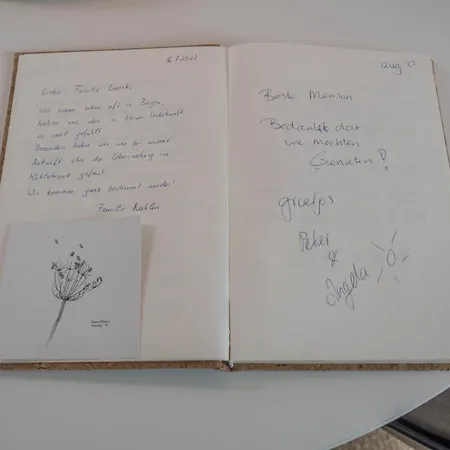 16.7.2022
Liebe Familie
wir waren schon oft in Bergen,
haben uns aber in keiner Unterkunft
so wohl gefühlt.
Besonders haben wir uns bei unserer
Ankunft über die Überraschung im
Kühlschrank gefreut.
Wir kommen ganz bestimmt wieder!
Familie
aug 22
Beste Mensen
Bedankt dat
we mochten
Genieten!
groetjes
Peter
&
Angela